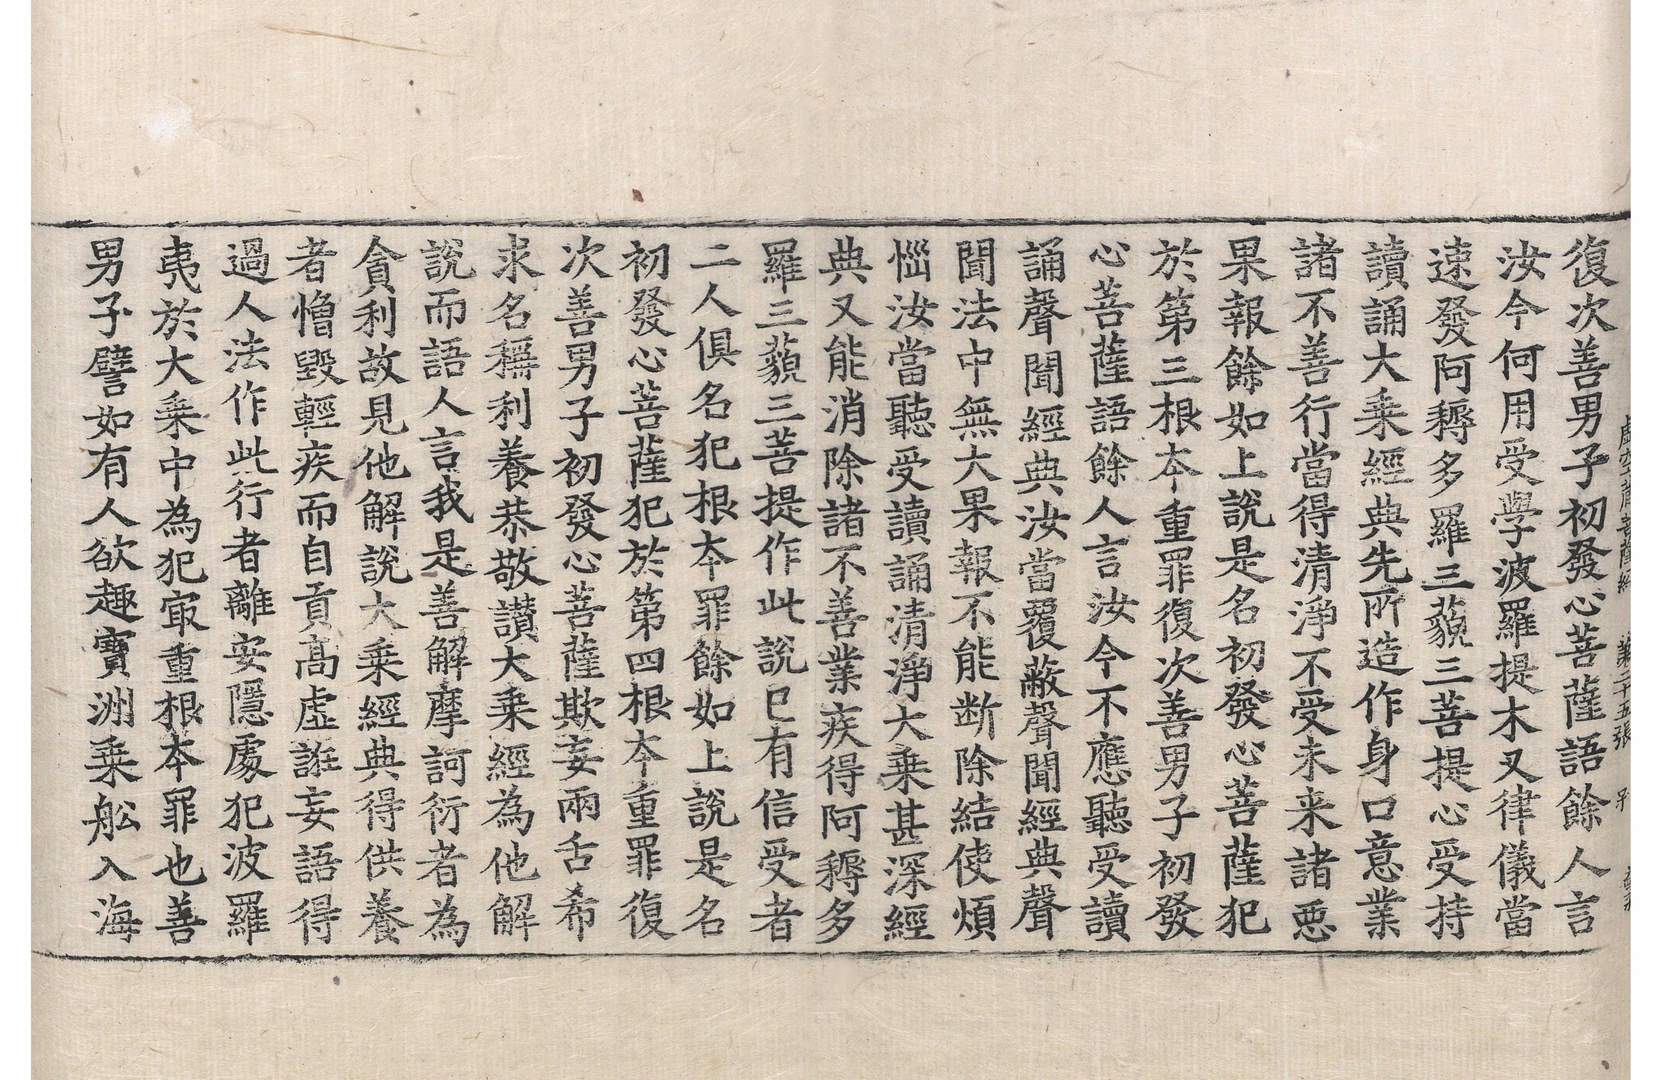 虛空藏菩薩經 第二十五張
復次善男子初發心菩薩語餘人言
汝今何用受學波羅提木叉律儀當
速發阿耨多羅三藐三菩提心受持
讀誦大乘經典先所造作身口意業
諸不善行當得清淨不受未来諸惡
果報餘如上說是名初發心菩薩犯
於第三根夲重罪復次善男子初發
心菩薩語餘人言汝今不應聽受讀
誦聲聞經典汝當覆蔽聲聞經典聲
聞法中無大果報不能断除結使煩
惱汝當聽受讀誦清淨大乗甚深經
典又能消除諸不善業疾得阿耨多
羅三藐三菩提作此說已有信受者
二人俱名犯根夲罪餘如上說是名
初發心菩薩犯於第四根夲重罪復
次善男子初發心菩薩欺妄兩舌希
求名稱利養恭敬讃大乗經為他解
說而語人言我是善解摩訶衍者為
貪利故見他解說大乗經典得供養
者憎毀輕疾而自貢高虛誑妄語得
過人法作此行者離安隱處犯波羅
夷於大乗中為犯㝡重根夲罪也善
男子譬如有人欲趣寶洲乗舩入海